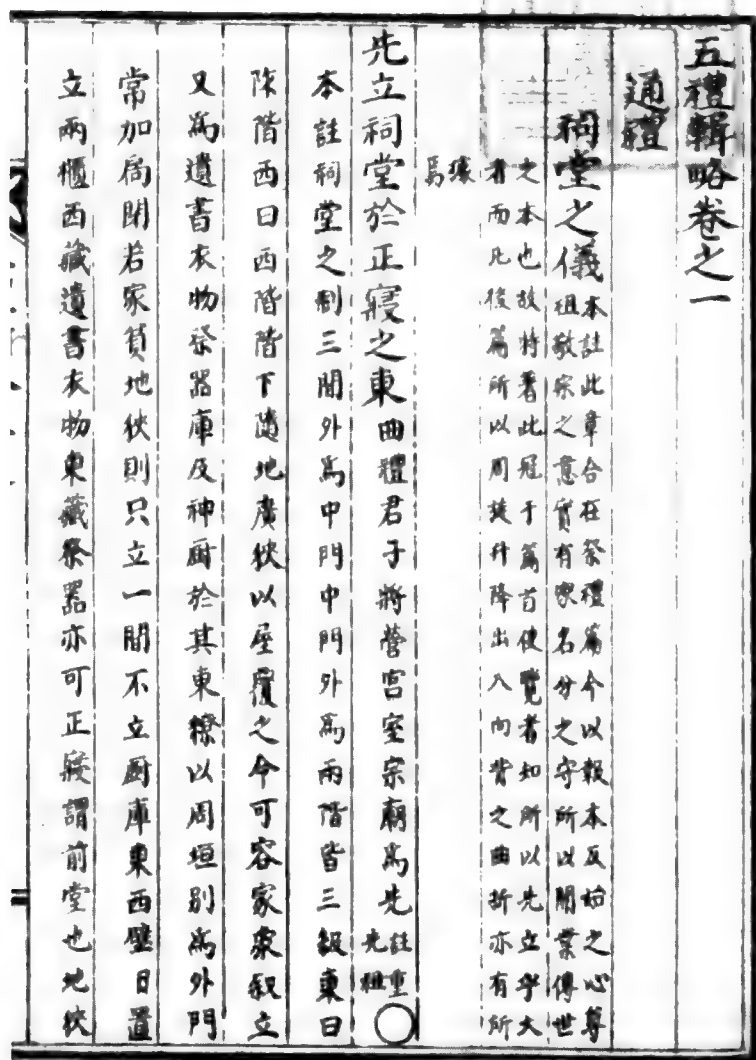 五禮輯略卷之一
通禮
祠堂之儀本註此章合在祭禮篇今以報本反始之心尊
祖敬宗之意實有家名分之守所以開業傳世
之本也故特著此冠于篇首使覽者知所以先立乎大
者而凡後篇所以周旋升降出入向背之曲折亦有所
據
焉
先立祠堂於正寢之東曲禮君子將營宮室宗廟為先註重
先祖○
本註祠堂之制三間外爲中門中門外爲兩階皆三級東曰
阼階西曰西階階下隨地廣狹以屋覆之令可容家衆叙立
又爲遺書衣物祭器庫及神厨於其東繚以周垣別爲外門
常加扃閉若家貧地狹則只立一間不立厨庫東西壁下置
立兩櫃西藏遺書衣物東藏祭器亦可正寢謂前堂也地狹